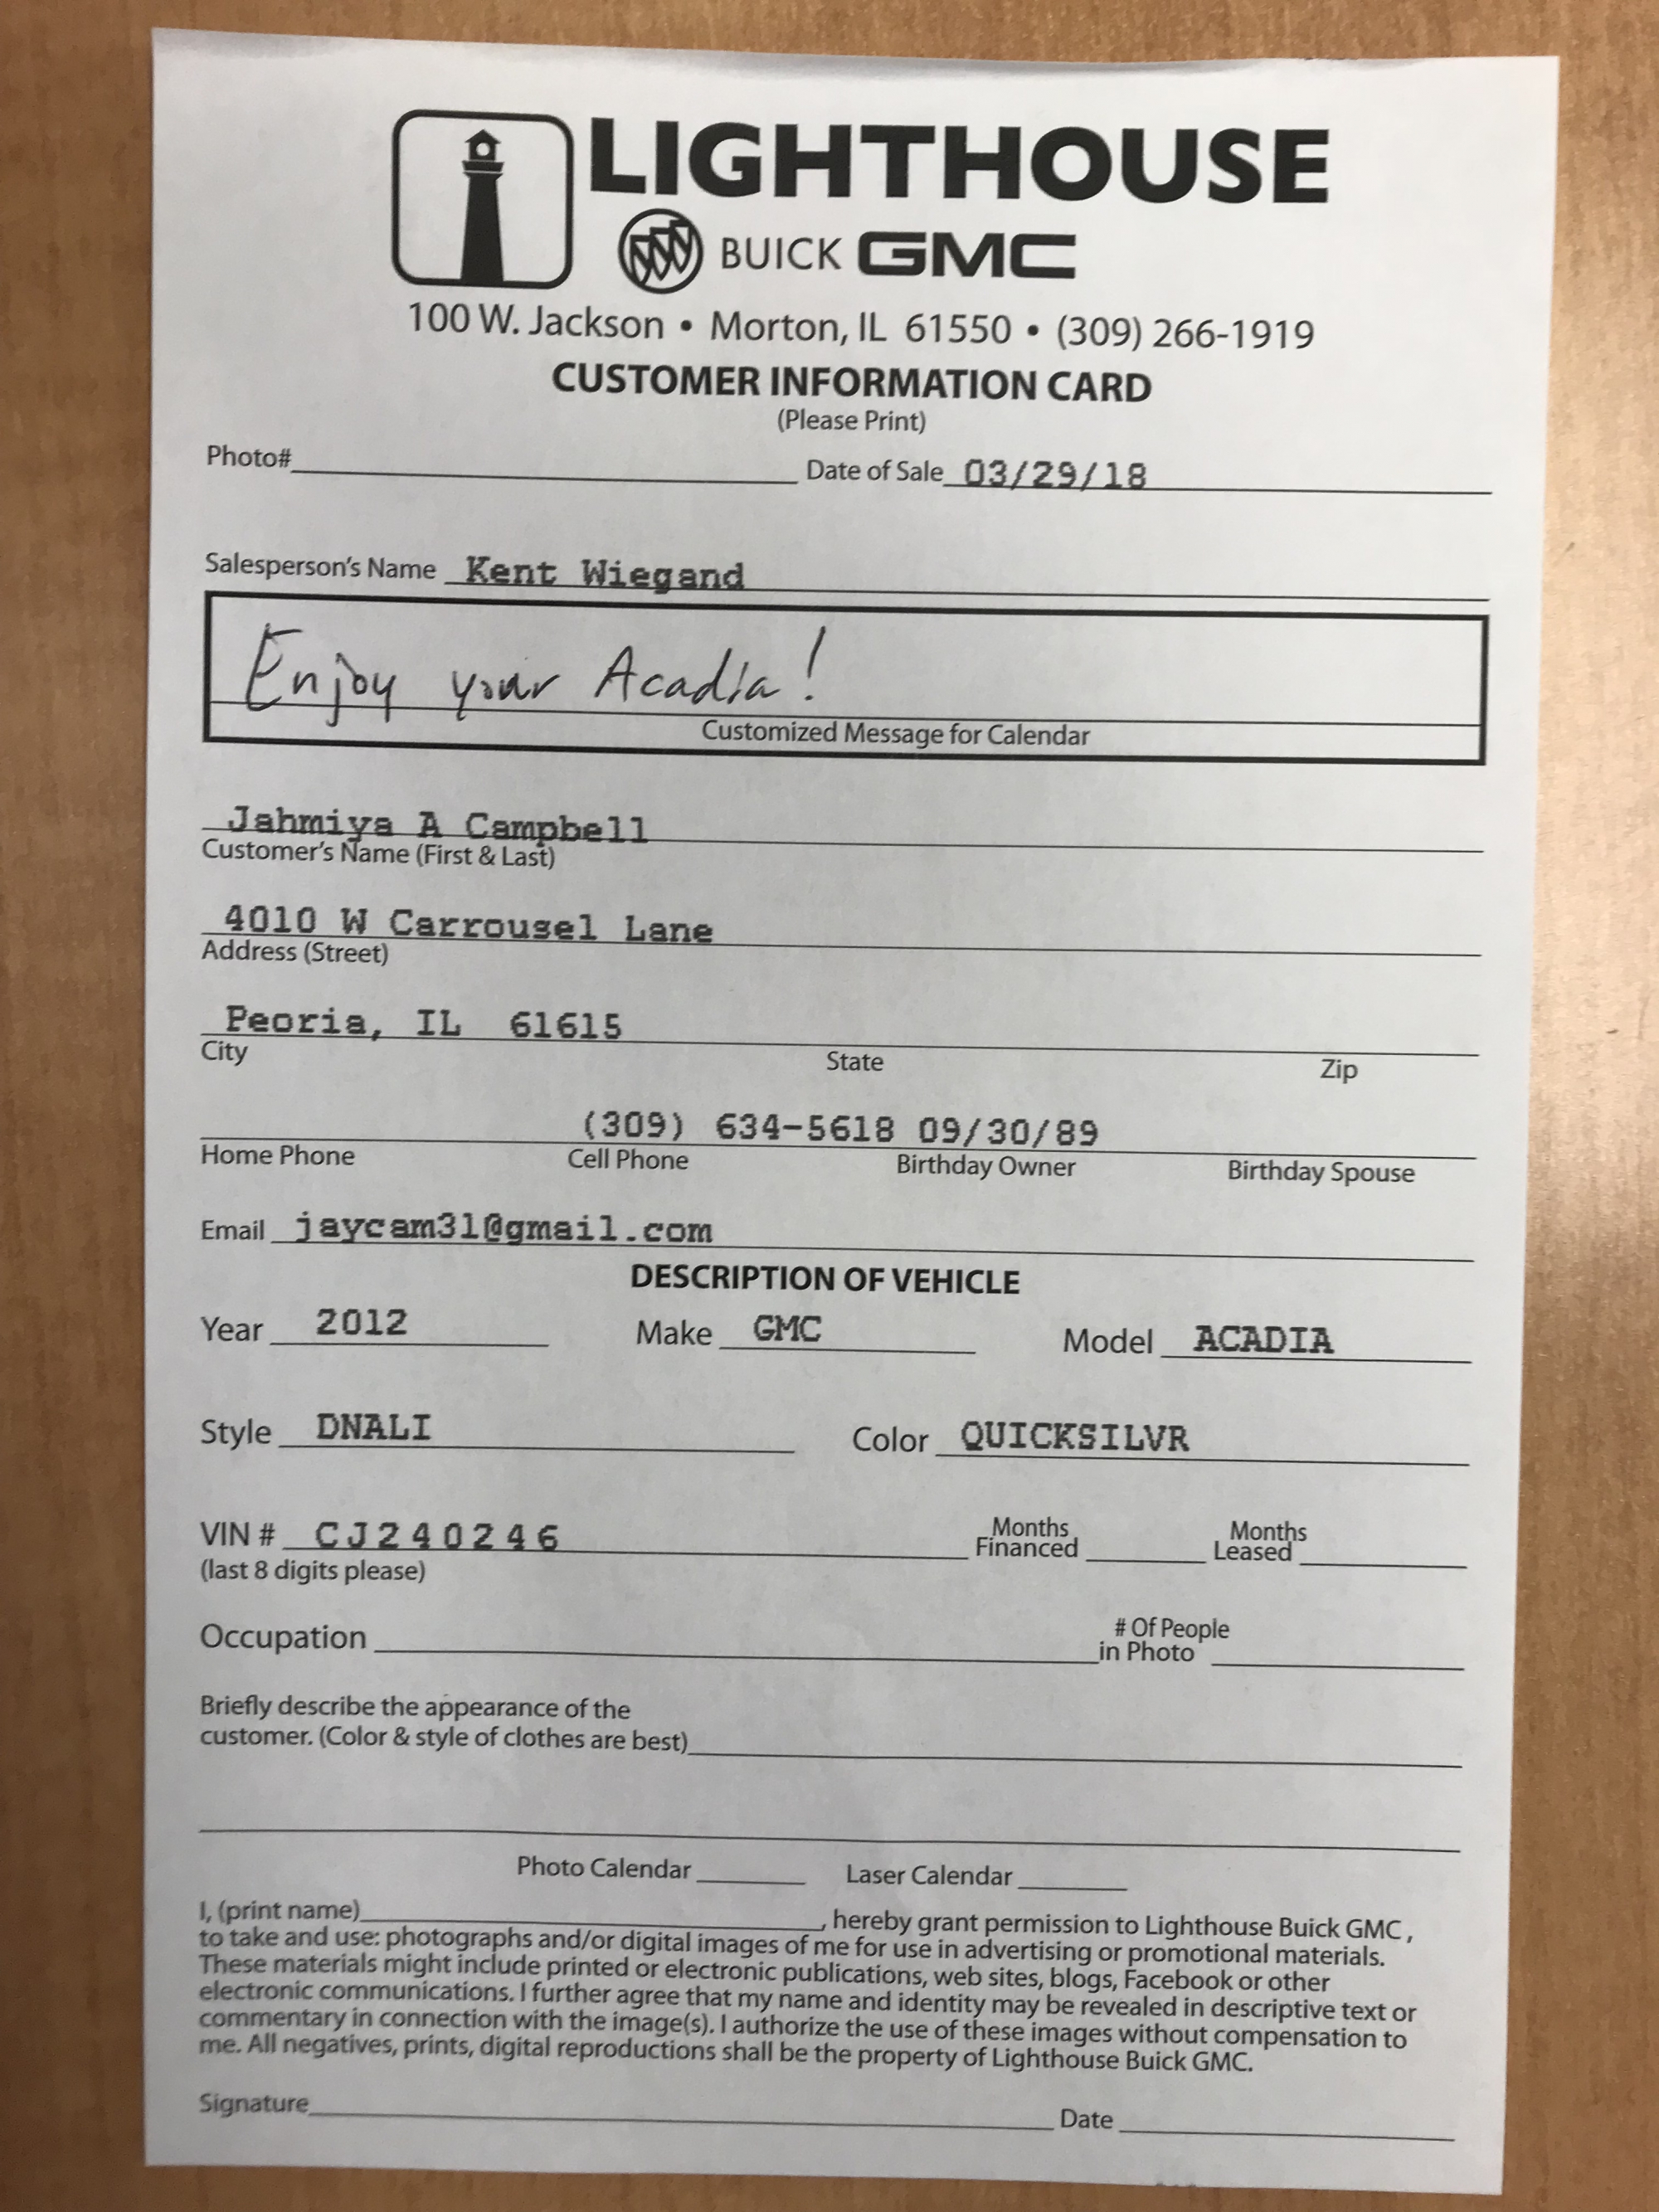 LIGHTHOUSE
BUICK GMC
100 W. Jackson • Morton, IL 61550 • (309) 266-1919
CUSTOMER INFORMATION CARD
(Please Print)
Photo# Date of Sale 03/29/18
Salesperson's Name Kent Wiegand
Enjoy your Acadia!
Customized Message for Calendar
Jahmiya A Campbell
Customer's Name (First & Last)
4010 W Carrousel Lane
Address (Street)
Peoria, IL 61615
City State Zip
(309) 634-5618 09/30/89
Home Phone Cell Phone Birthday Owner Birthday Spouse
Email jaycam31@gmail.com
DESCRIPTION OF VEHICLE
Year 2012 Make GMC Model ACADIA
Style DNALI Color QUICKSILVR
VIN # CJ240246 Months Financed Months Leased
(last 8 digits please)
Occupation # Of People in Photo
Briefly describe the appearance of the
customer. (Color & style of clothes are best)
Photo Calendar Laser Calendar
I, (print name) , hereby grant permission to Lighthouse Buick GMC,
to take and use: photographs and/or digital images of me for use in advertising or promotional materials.
These materials might include printed or electronic publications, web sites, blogs, Facebook or other
electronic communications. I further agree that my name and identity may be revealed in descriptive text or
commentary in connection with the image(s). I authorize the use of these images without compensation to
me. All negatives, prints, digital reproductions shall be the property of Lighthouse Buick GMC.
Signature Date